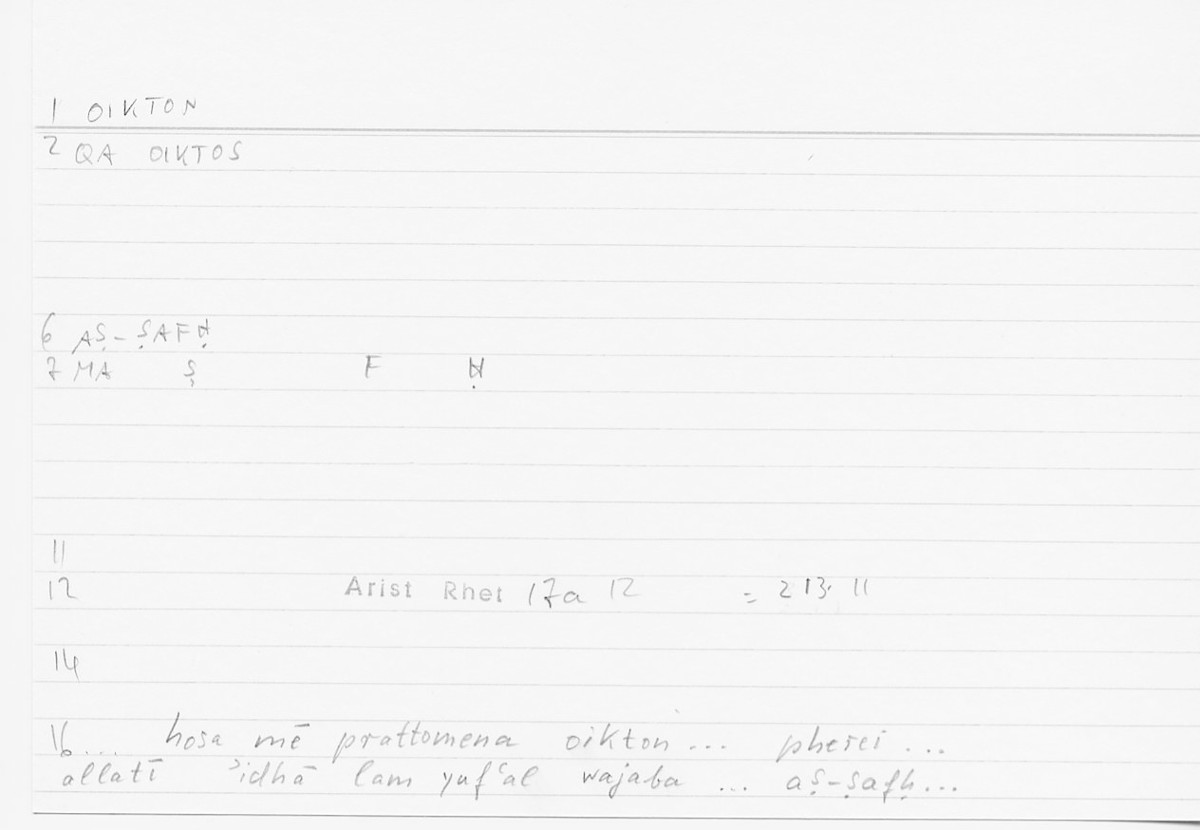 1 OIKTON
2 QA OIKTOS
6 AṢ-ṢAFḤ
7 MA Ṣ F Ḥ
11
12 Arist Rhet 17a 12 = 213. 11
14
16... hosa mē prattomena oikton ... pherei ...
allatī ʾidhā lam yufʿal wajaba ... aṣ-ṣafḥ...